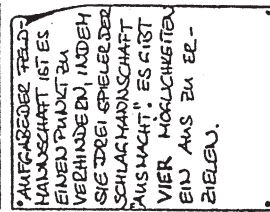 AUFGABE DER FELD-
MANNSCHAFT IST ES
EINEN PUNKT ZU
VERHINDERN, INDEM
SIE DREI SPIELER DER
SCHLAGMANNSCHAFT
"AUSMACHT". ES GIBT
VIER MÖGLICHKEITEN
EIN AUS ZU ER-
ZIELEN.